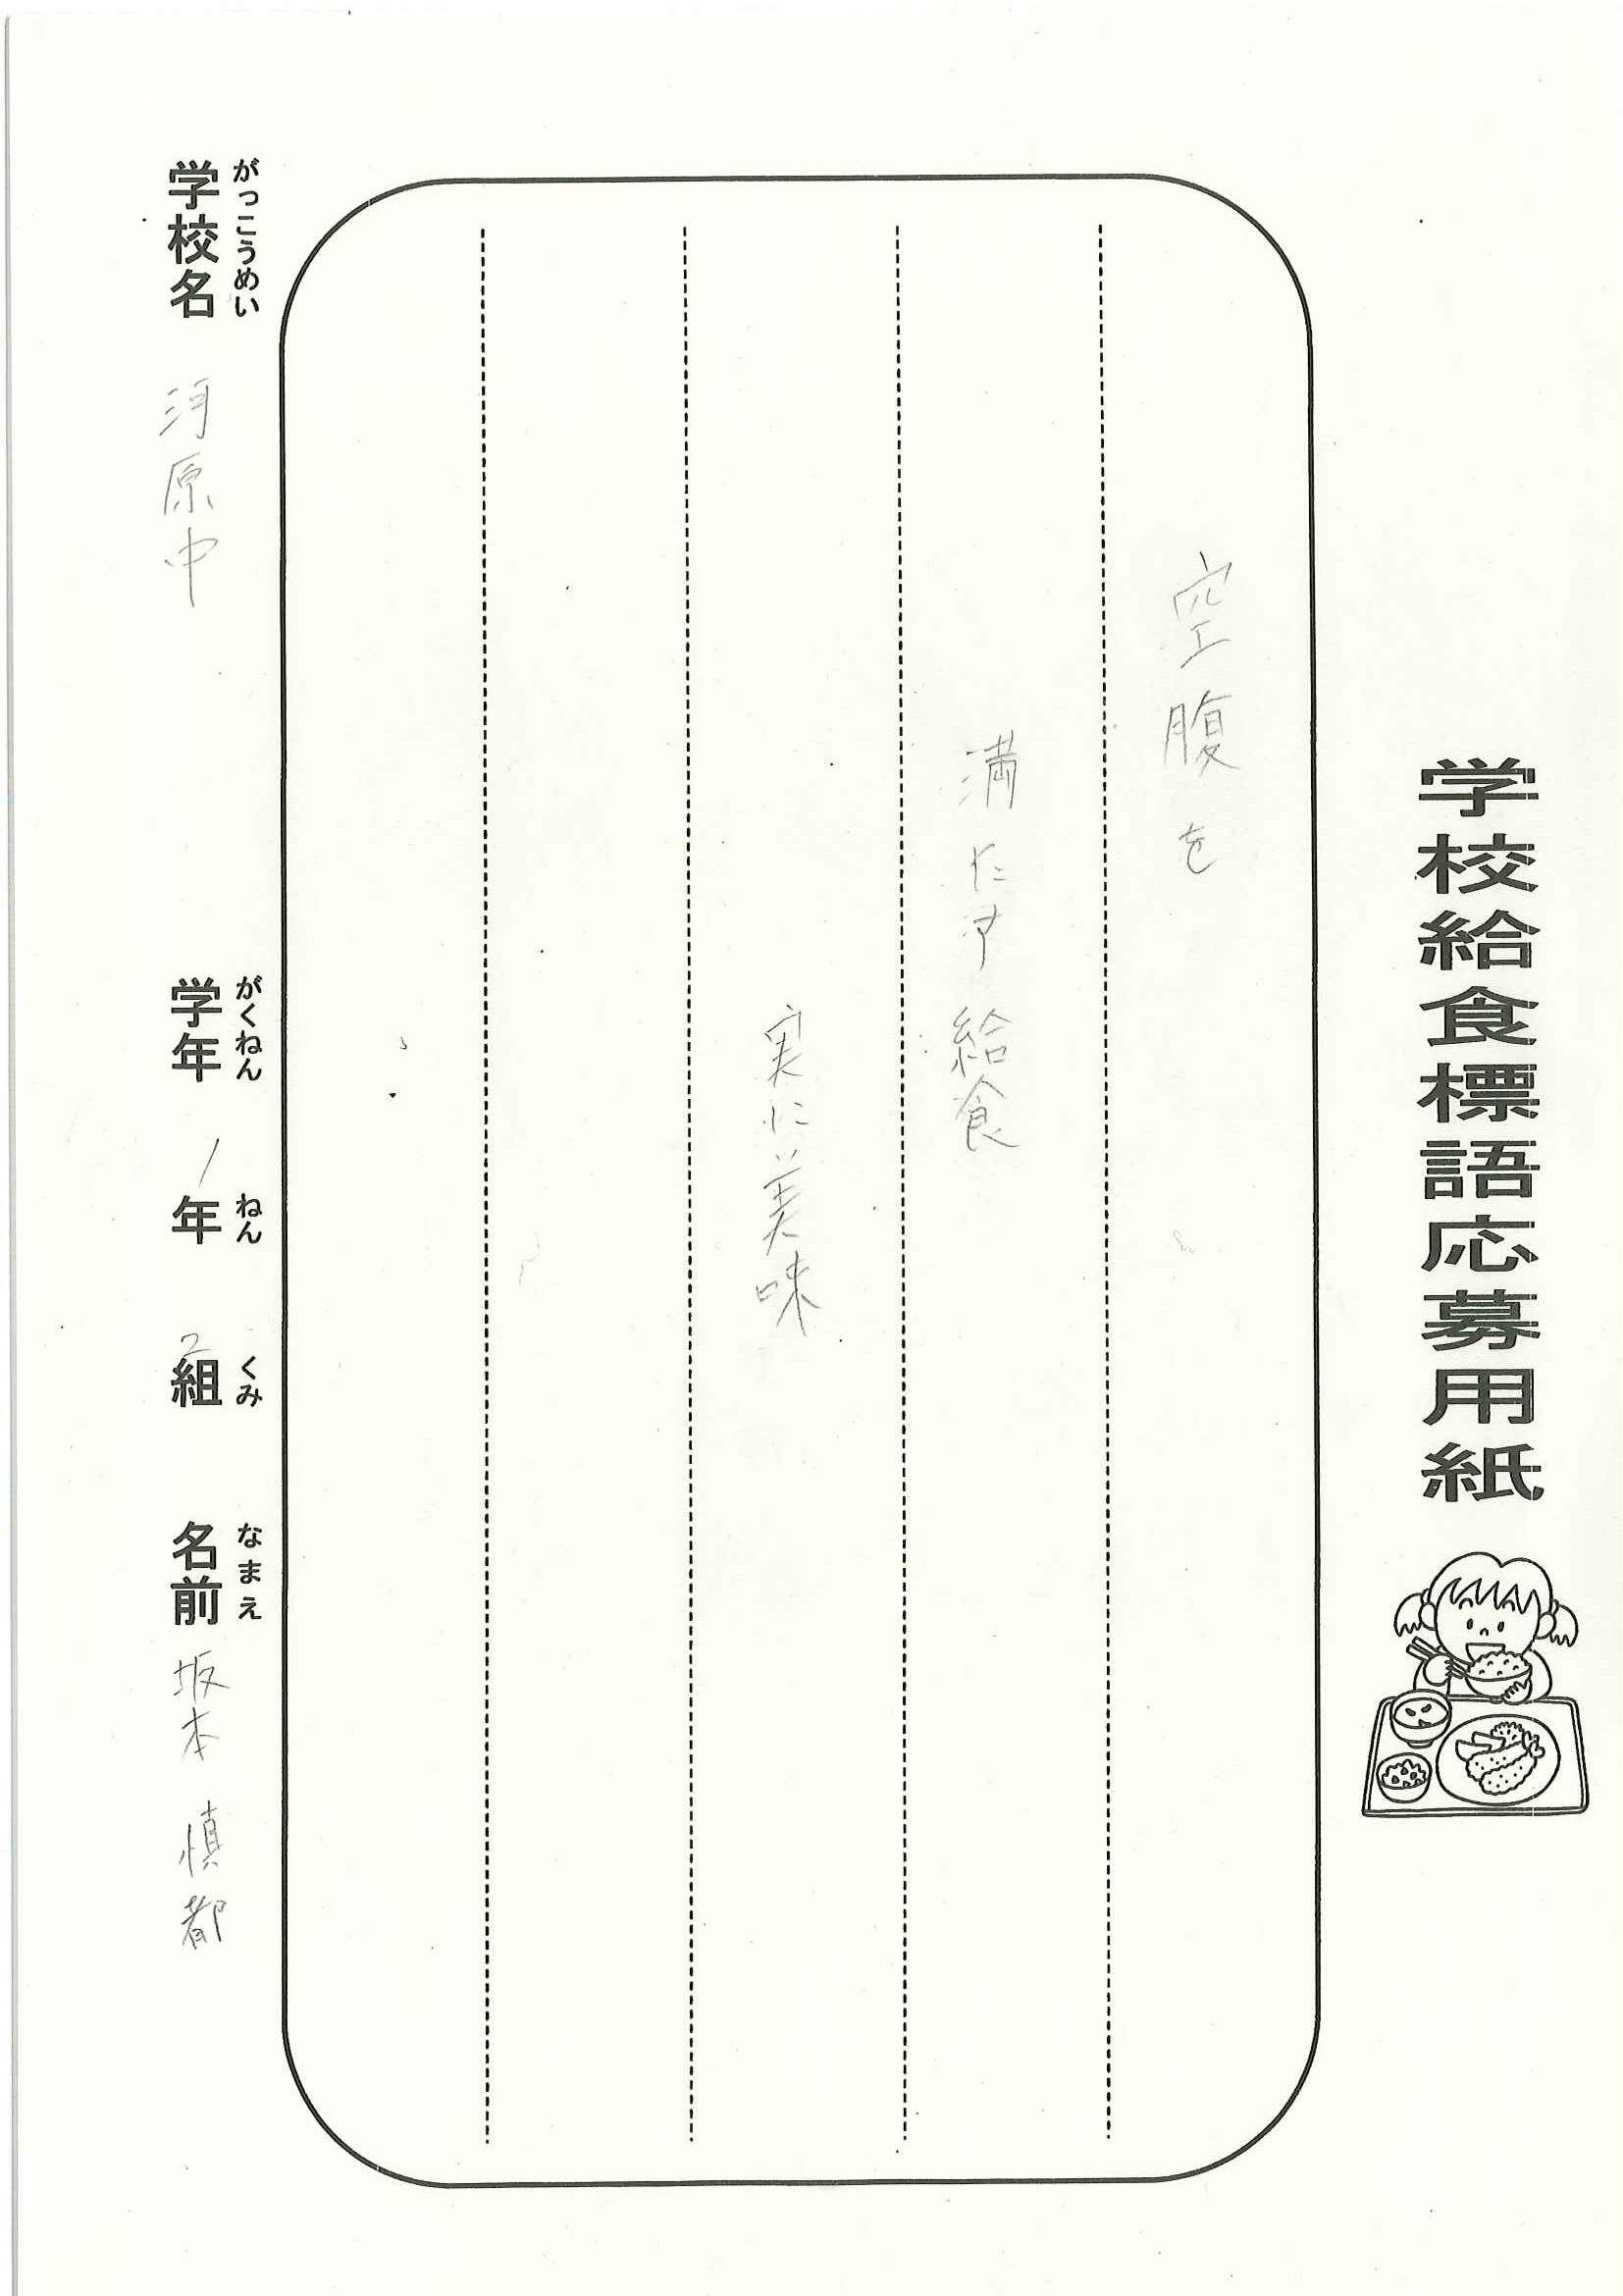 学校給食標語応募用紙
空腹を
満たす給食
実に美味
がっこうめい
学校名 河原中
がくねん ねん くみ なまえ
学年 1年 2組 名前 坂本 慎都